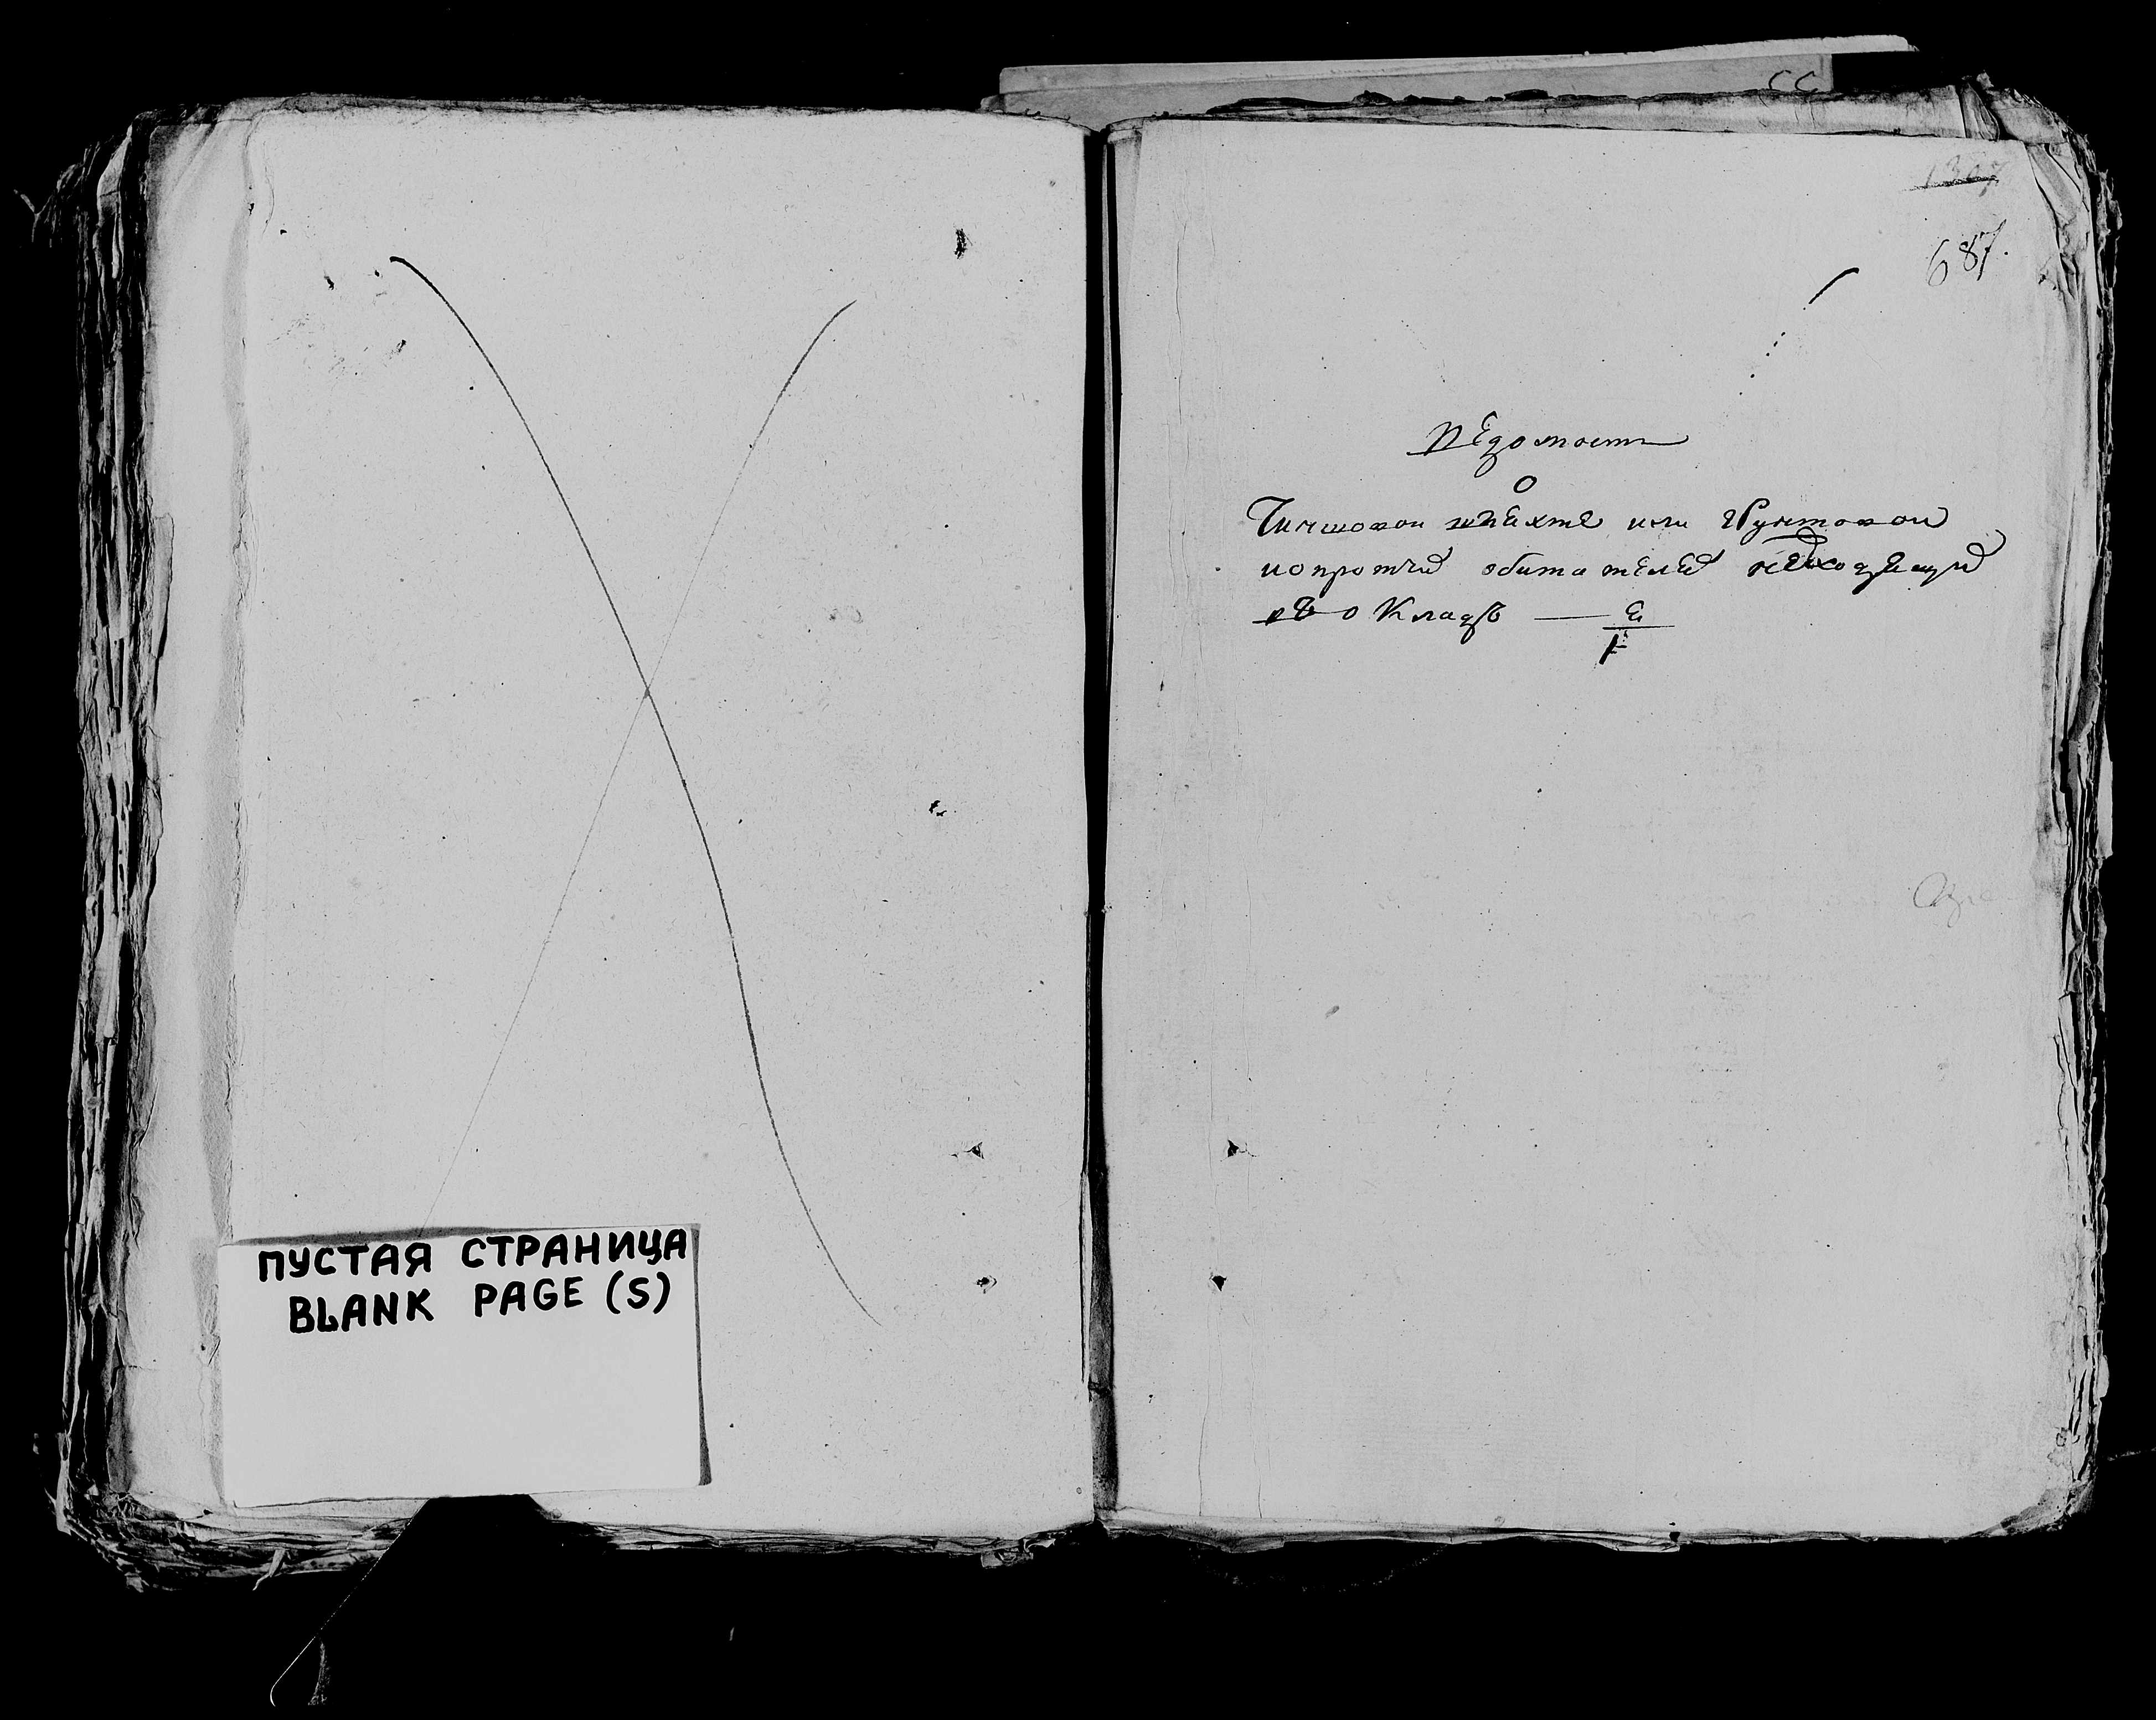 ПУСТАЯ СТРАНИЦА
BLANK PAGE (S)
1307
687.
Ведомость
О
Чиншовой шляхте или Грунтовой
и о протчих обитателей не входящих
в Окладъ